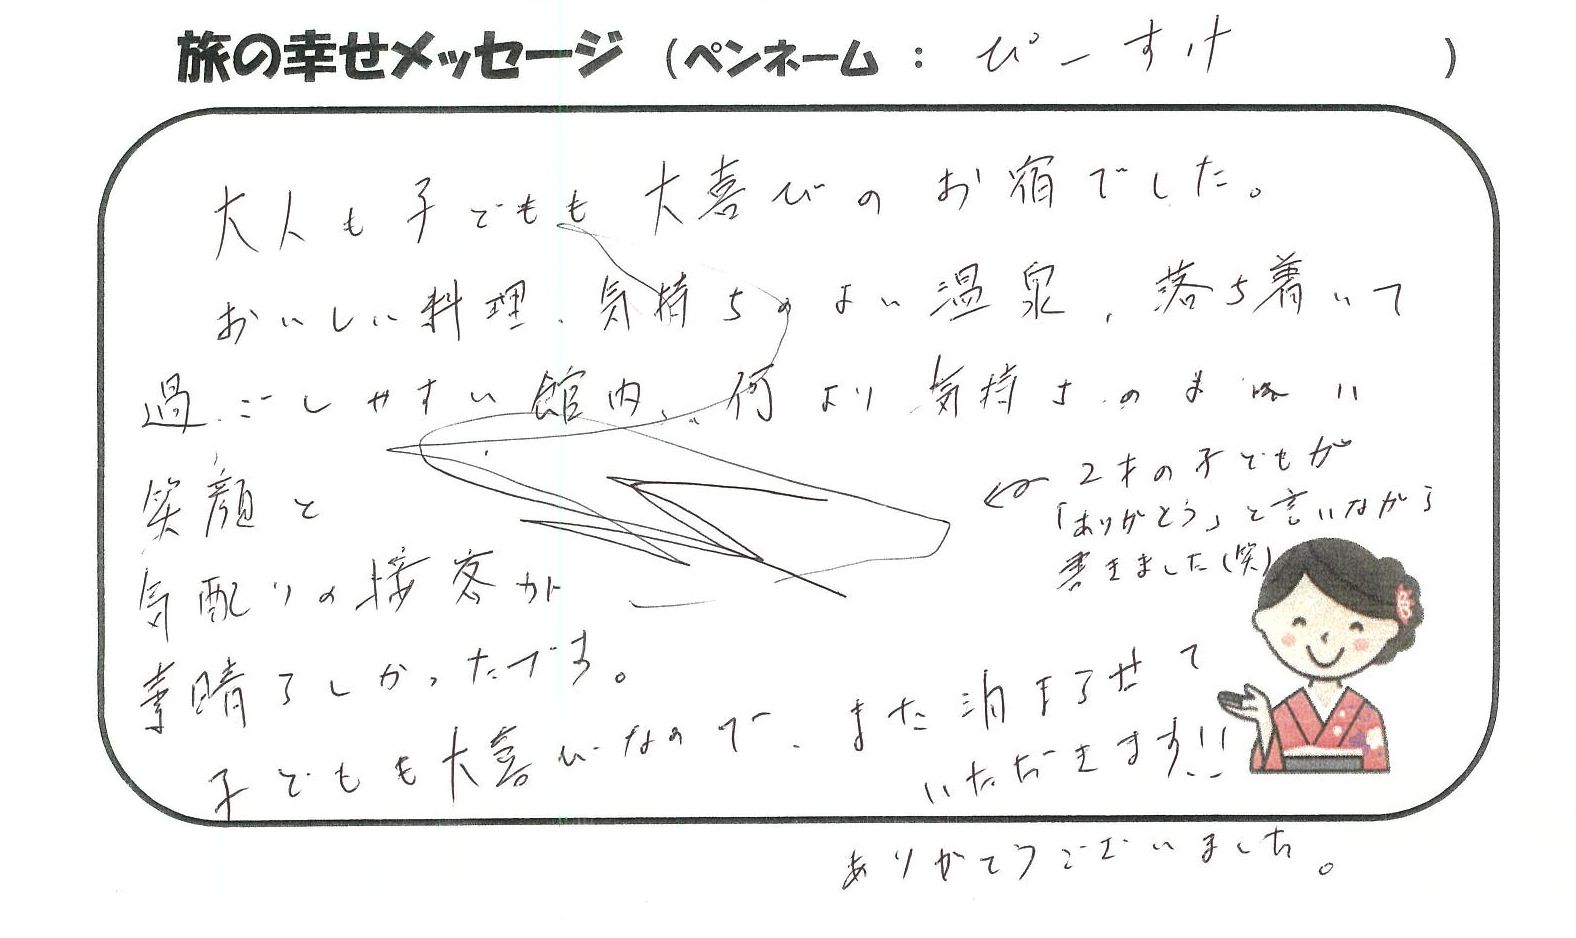 旅の幸せメッセージ (ペンネーム : ぴーすけ )
大人も子どもも大喜びのお宿でした。
おいしい料理、気持ちのよい温泉、落ち着いて
過ごしやすい館内、何より気持ちのよい
笑顔と
気配りの接客が
素晴らしかったです。
←2才の子どもが
「ありがとう」と言いながら
書きました(笑)
子どもも大喜びなので、また泊まらせて
いただきます!!
ありがとうございました。